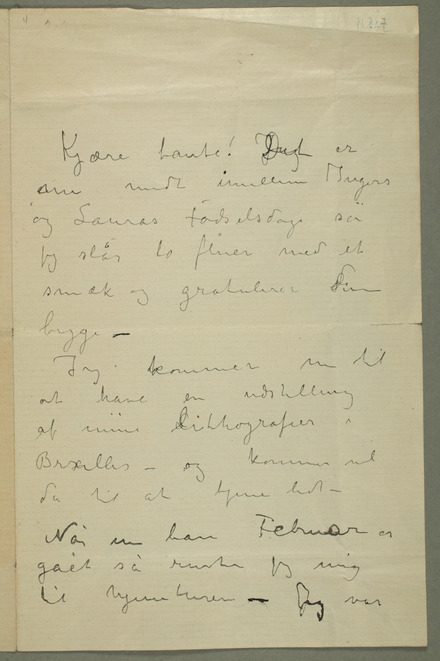 Kjære tante! Det er
nu midt imellem Ingers
og Lauras Fødselsdage så
jeg slår to fluer med et
smæk og gratulerer dem
begge –
Jeg kommer nu til
at have en udstilling
af mine Lithografier i
Brxelles – og kommer vel
da til at tjene lidt –
Når nu bare Februar er
gået så ruster jeg mig
til hjemturen – Jeg var